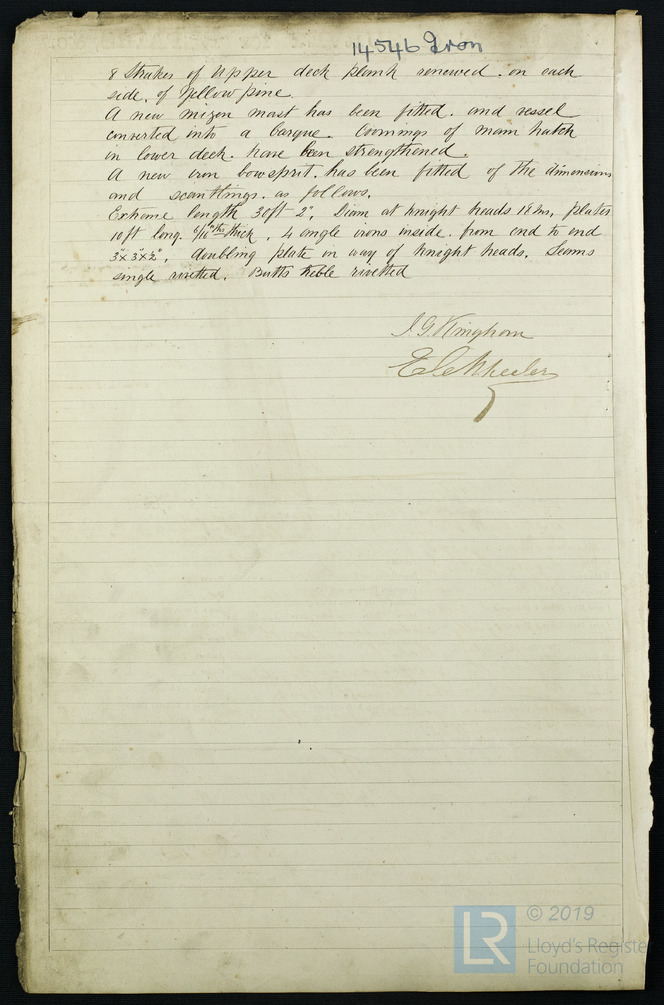 14546 Iron
8 Strakes of Upper deck plank renewed. on each
side. of Yellow pine.
A new mizen mast has been fitted. and vessel
converted into a barque. Coomings of main hatch
in lower deck. have been strengthened.
A new iron bowsprit. has been fitted of the dimensions
and scantlings. as follows.
Extreme length 30ft 2", Diam at knight heads 18 Ins, plates
10 ft long. 6/16ths thick, 4 angle irons inside. from end to end
3"x 3"x ½", doubling plate in way of knight heads, Seams
single rivetted. Butts treble rivetted
J. G. Kinghorn
Wheeler
© 2019
Lloyd's Register
Foundation
LR